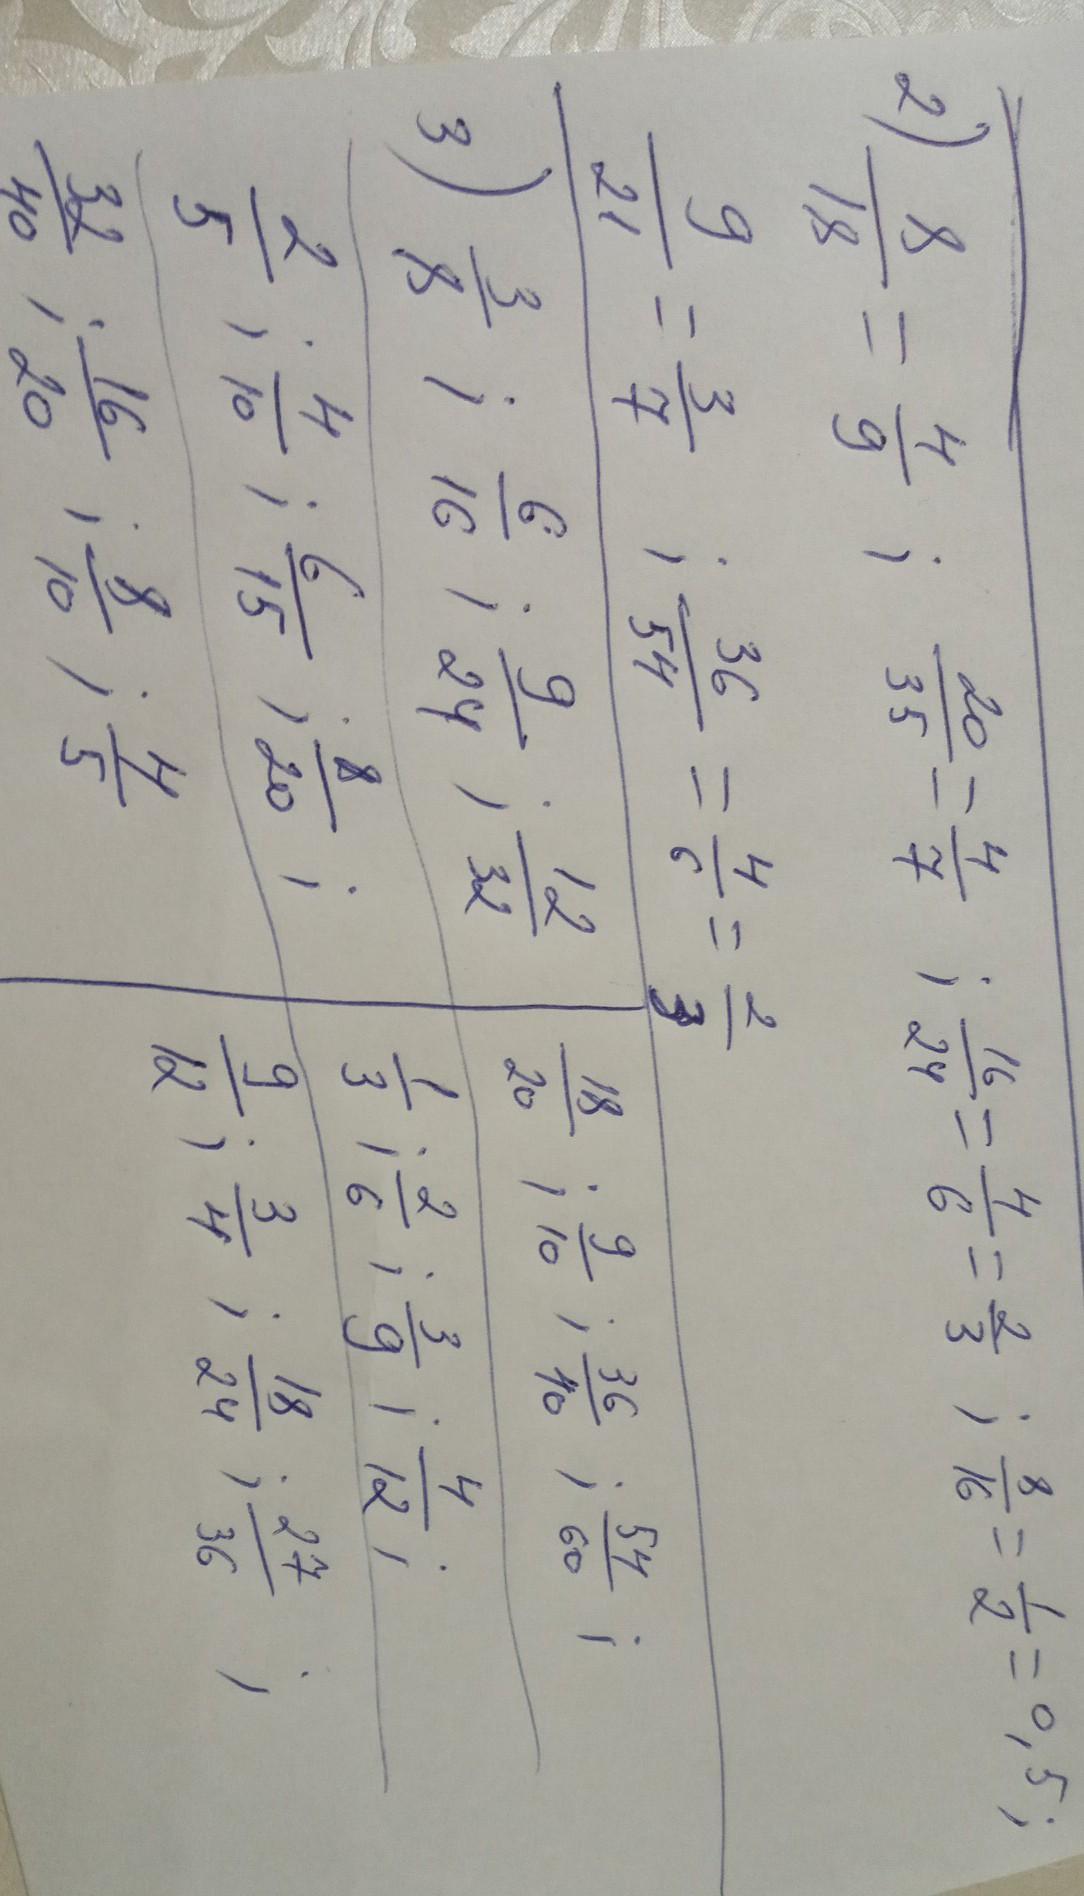 2) 8/18 = 4/9 ; 20/35 = 4/7 ; 16/24 = 4/6 = 2/3 ; 8/16 = 1/2 = 0,5 ;
9/21 = 3/7 ; 36/54 = 4/6 = 2/3
3) 3/8 ; 6/16 ; 9/24 ; 12/32
2/5 ; 4/10 ; 6/15 ; 8/20 ;
32/40 ; 16/20 ; 8/10 ; 4/5
18/20 ; 9/10 ; 36/40 ; 54/60 ;
1/3 ; 2/6 ; 3/9 ; 4/12 ;
9/12 ; 3/4 ; 18/24 ; 27/36 ;